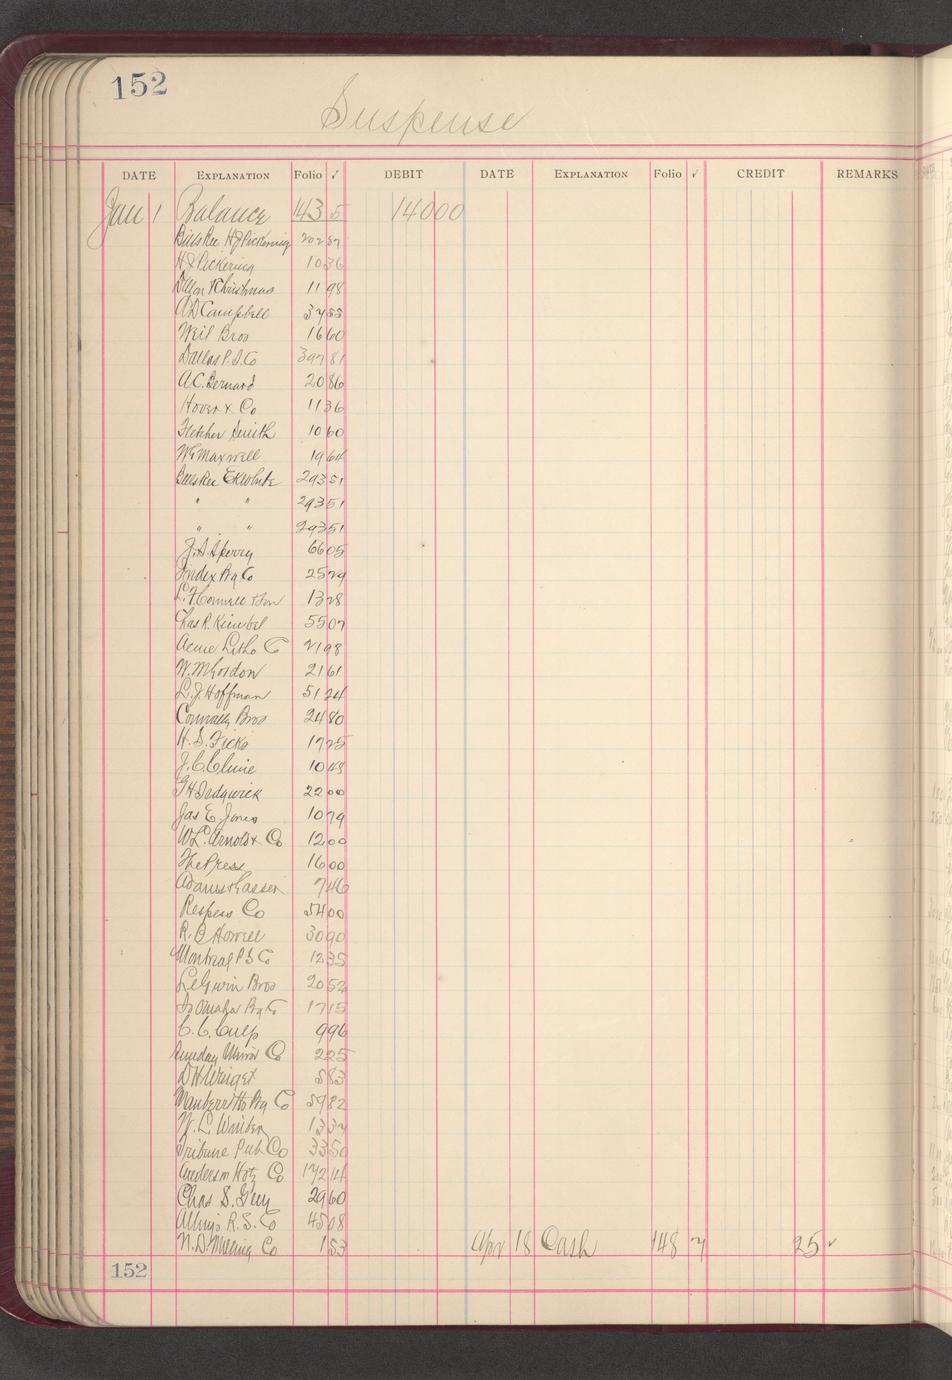 152
Suspense
DATE EXPLANATION Folio ✓ DEBIT DATE EXPLANATION Folio ✓ CREDIT REMARKS
Jan 1 Balance 143 5 14000
Bills Rec H J Pickering 202 87
H J Pickering 10 36
& Christmas 11 98
A D Campbell 37 55
Weil Bros 16 60
Dallas P. S. Co 397 81
A. C. Bernard 20 86
Hover & Co 11 36
Fletcher Smith 10 60
W G Maxwell 19 64
Bills Rec E K White 293 51
" " 293 51
" " 293 51
J. S. Sperry 66 05
Index Ptg Co 25 79
L. F. Connell & Son 13 28
Chas R. 55 07
Acme Litho Co 21 98
W. M Gordon 21 61
L. J. Hoffman 51 24
Connally Bros 24 80
H. S. Ficks 17 25
J. C. Cline 10 48
G H Sedgwick 22 00
Jas E Jones 10 79
W L. Arnold & Co 12 00
The Press 16 00
Adams & 7 46
Respess Co 54 00
R. O Howell 30 90
Montreal P S Co 12 35
LeGwin Bros 20 52
So Omaha Ptg Co 17 15
C. C. Culp 9 96
Sunday Mirror Co 2 25
D H Wright 5 83
Ptg Co 59 82
W. L. 13 37
Tribune Pub Co 33 50
Anderson Co 172 14
Chas S. Guy 29 60
Alling's R. S. Co 45 08
N. D. Milling Co 1 53 Apr 18 Cash 148 7 25 ✓
152